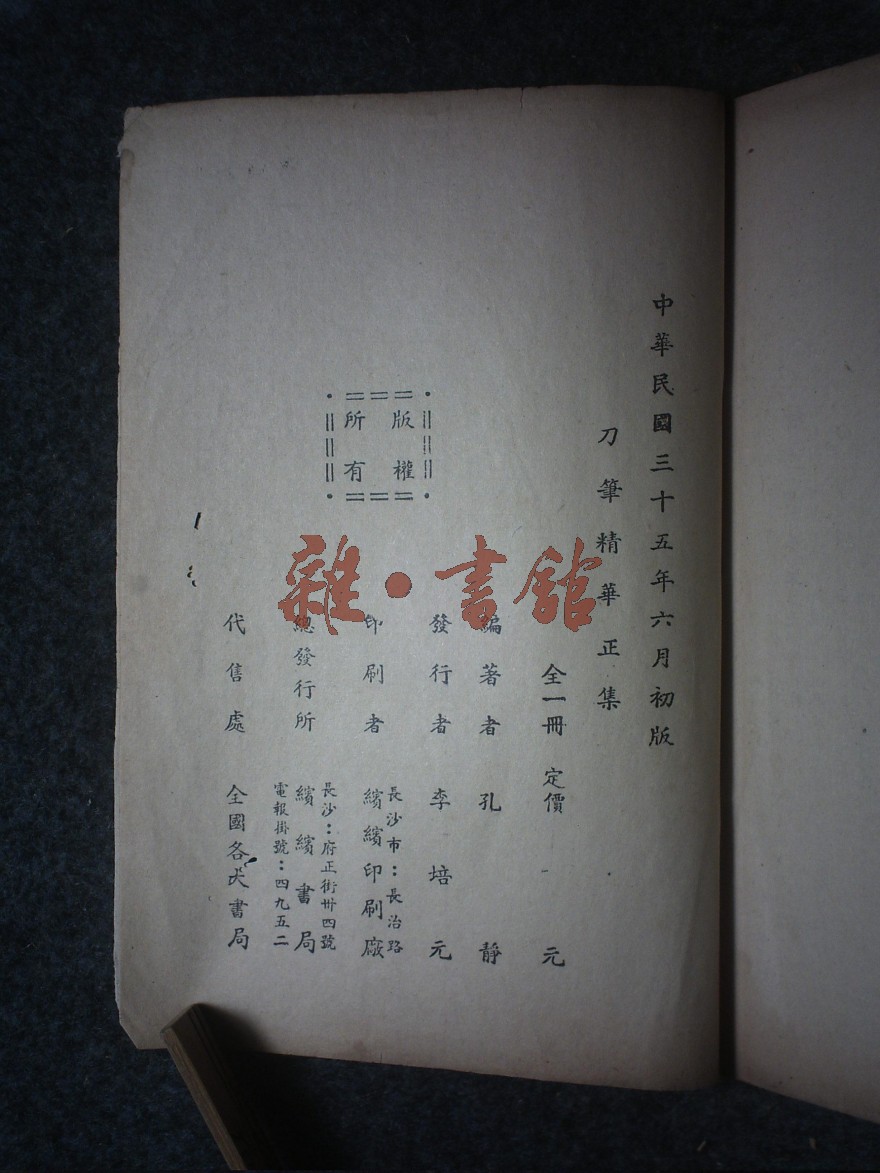 中華民國三十五年六月初版
刀筆精華正集
全一冊 定價 元
編著者 孔靜
發行者 李培元
版權
所有
印刷者
長沙市：長治路
繽繽印刷廠
總發行所
長沙：府正街卅四號
繽繽書局
電報掛號：四九五二
代售處 全國各大書局
雜·書館